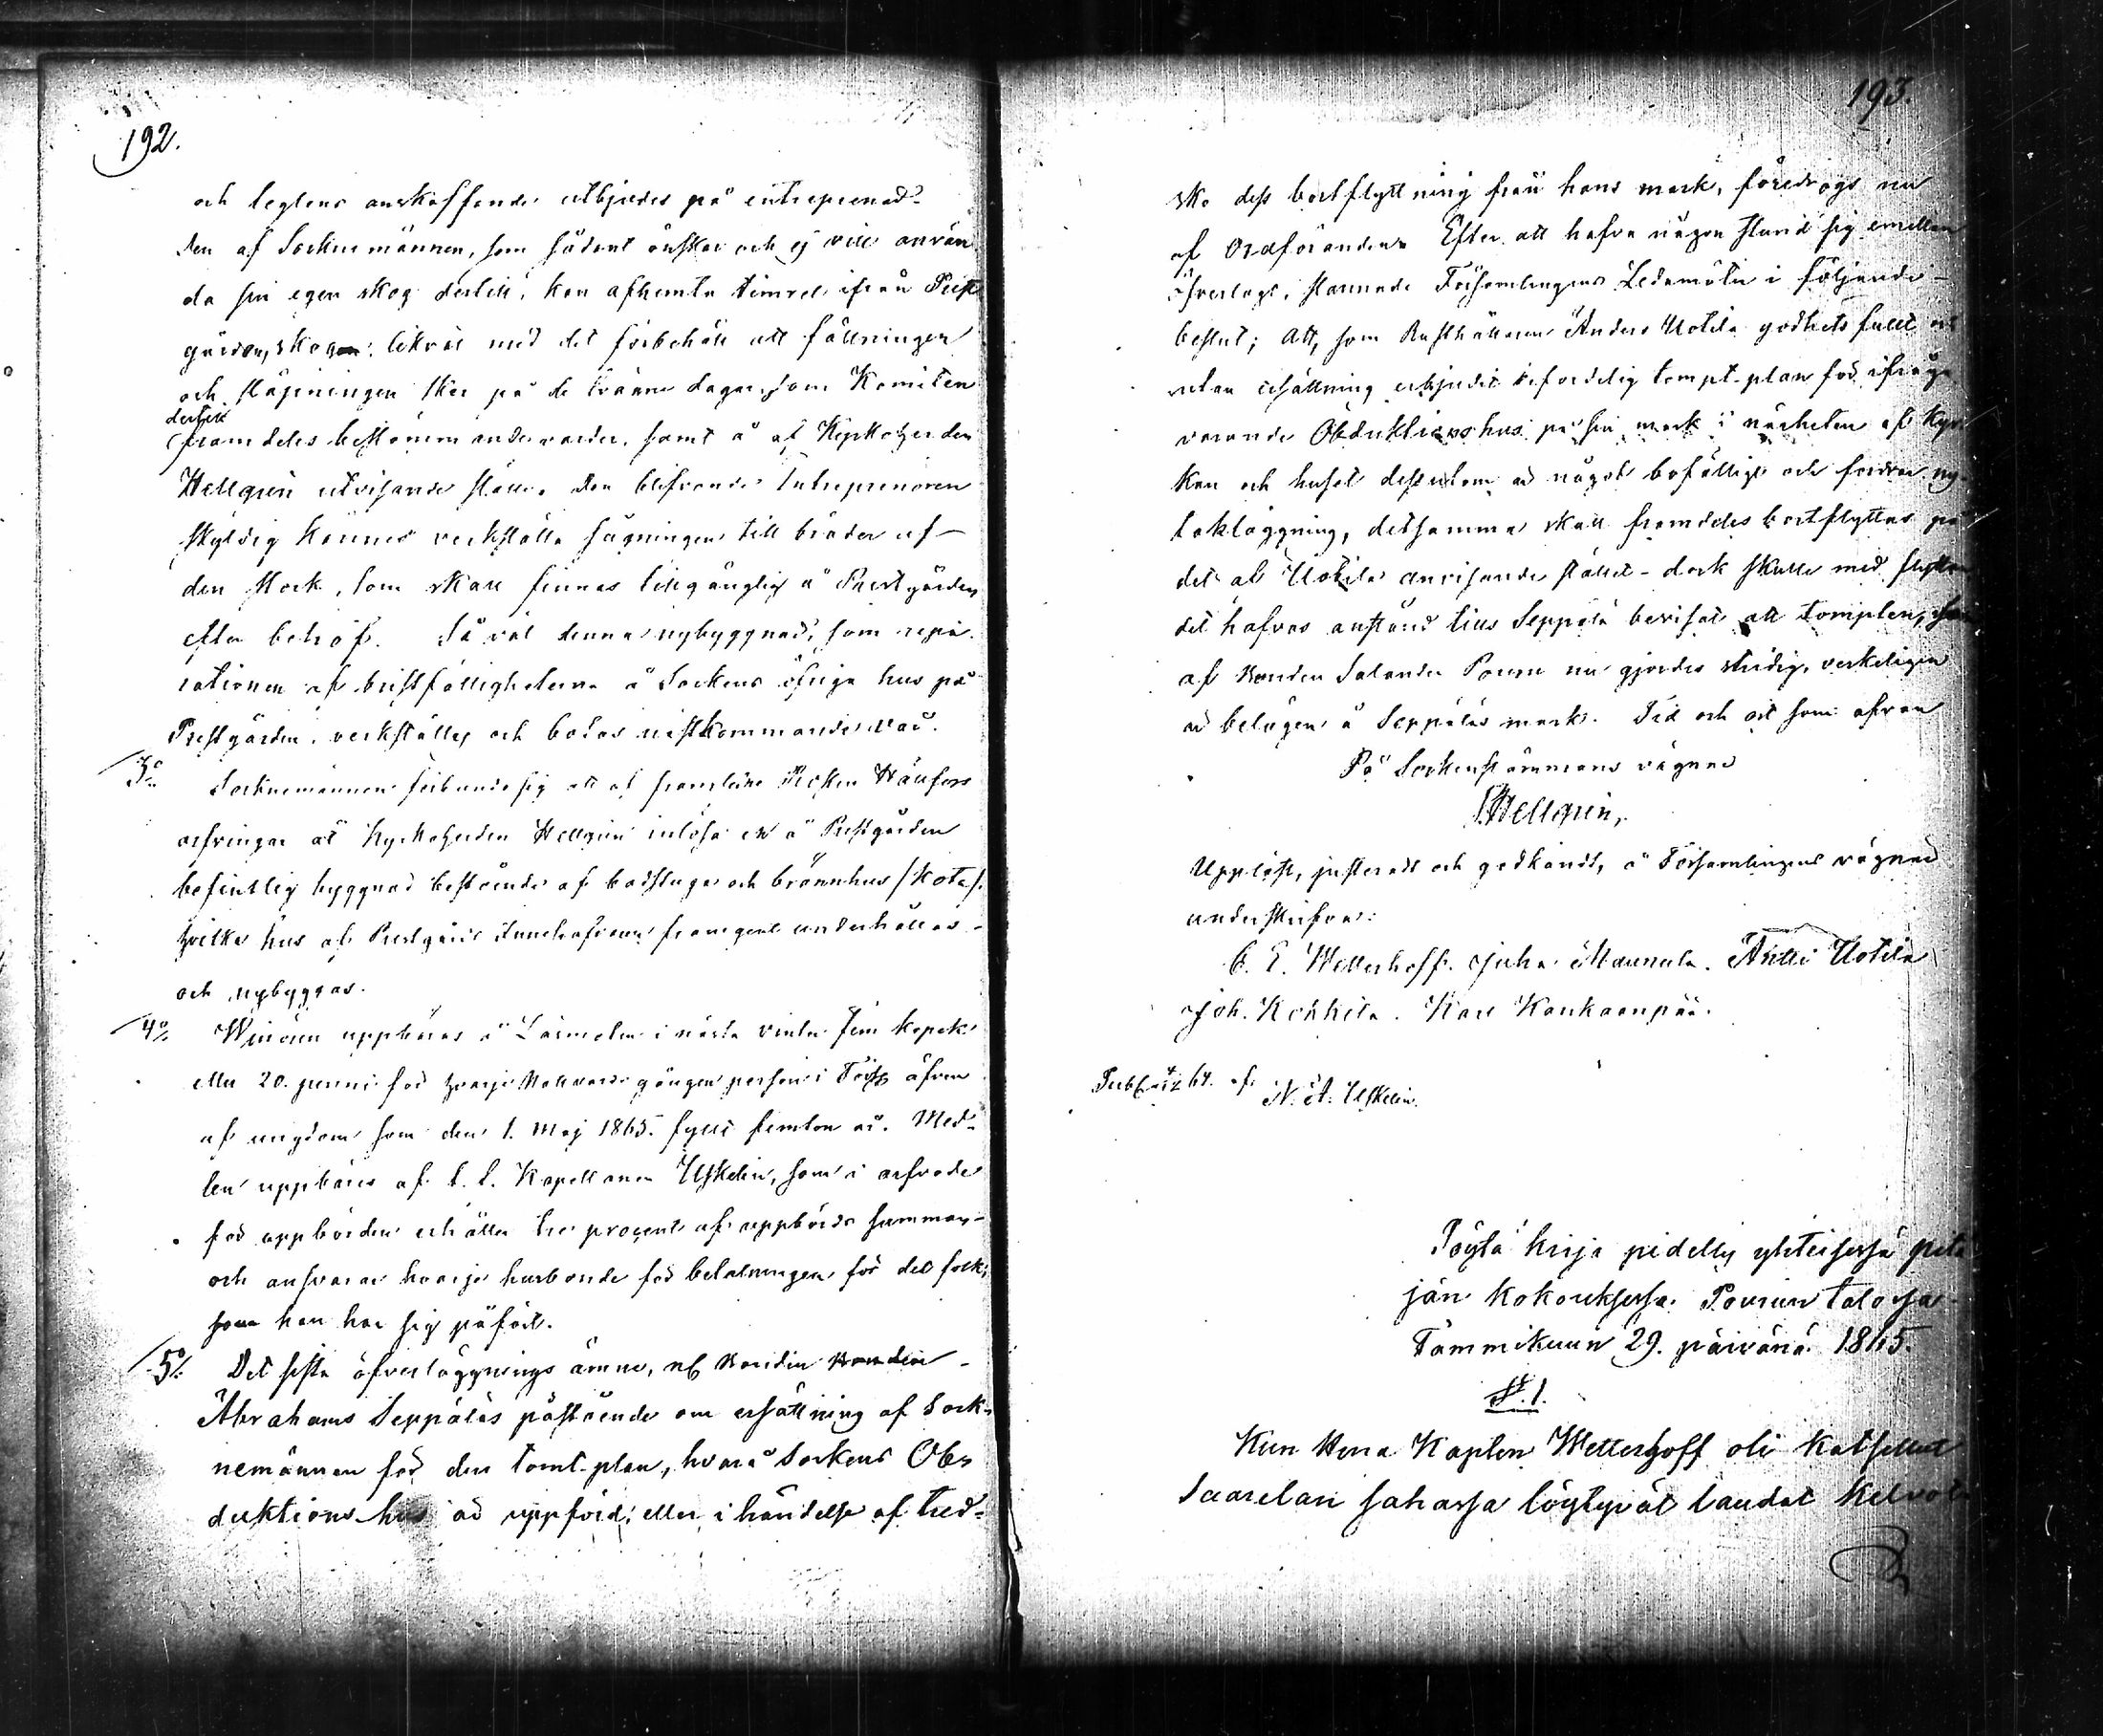 192.
och teglens anskaffande utbjudes på entreprenad.
den af Sockne männen, som sådant önskar och ej vill använ
da sin egen skog dertill, kan afhemta timret ifrån Prest
gårdens skogen: likväl med det förbehåll att fällningen
och släpningen sker på de tvänne dagar, som Komiten
dertill
framdeles bestämmande varder, samt å af Kyrkoherden
Hellgren utvisande ställe. den blifvande Entreprenören
skyldig kännes verkställa sågningen till bräder af
den stock, som skall finnas tillgänglig å Prestgården
efter behof. Så väl denna nybyggnad, som repa-
rationen af bristfälligheterna å Sockens öfriga hus på
Prestgården, verkställes och botas nästkommande vår.
3:o Socknemännen förbundo sig att af framlidne Prosten Hänfors
arfvingar åt Kyrkoherden Hellgren inlösa en å Prestgården
befintlig byggnad bestående af badstuga och brännhus /Kota/.
hvilka hus af Prestgårds Innehafvaren framgent underhållas
och nybyggas.
4:o Winören uppbäras å Läsmöten i nästa vinter fem kopek
eller 20. penni för hvarje Nattvards gången person i Förs. äfven
af ungdom som den 1. Maj 1865. fyllt femton år. Med-
len uppbäres af t. f. Kapellanen Uskelin, som i arfvode
för uppbörden erhåller tre procent af uppbörds summan
och ansvarar hvarje husbonde för betalningen för det folk,
som han har sig påfört.
5:o Det sista öfverläggnings ämne, nl. Bonden Bonden
Abrahams Seppäläs påstående om ersättning af Sock-
nemännen för den tomt-plan, hvarå Sockens Ob-
duktions hus är uppförd; eller i händelse af tred-
193.
ska dess bortflyttning från hans mark, föredrogs nu
af Ordföranden. Efter att hafva någon stund sig emellan
öfverlagt, stannade Församlingens Ledamöter i följande
beslut; att, som Rusthållaren Anders Uotila godhetsfullt och
utan ersättning erbjudit erforderlig tompt-plan för ifråga
varande Obduktions hus på sin mark i närheten af Kyr
kan och huset dessutom är något bofälligt och fordrar ny
takläggning, detsamma skall framdeles bortflyttas på
det af Uotila anvisande stället - dock skulle med flytt
det hafvas anstånd tills Seppälä bevisat att tompten, som
af Bonden Salander Pouru nu gjordes stridig, verkeligen
är belägen å Seppäläs mark. Tid och ort som ofvan
På Sockenstämmans vägnar
Hellgren,
Uppläst, justeradt och godkändt, å Församlingens vägnar
underskrifva:
C. E. Wetterhoff. Juha Maunula. Antti Uotila
Joh. Kokkila. Karl Kankaanpää.
Publ. 4/12 64. af N. A. Uskelin.
Pöytä kirja pidetty yhteisessä pitä
jän kokouksessa. Pourun talossa
Tammikuun 29. päivänä 1865.
§. 1.
Kun Herra Kapten Wetterhoff oli katsellut
Saarelan sahassa löytyvät laudat kelvot